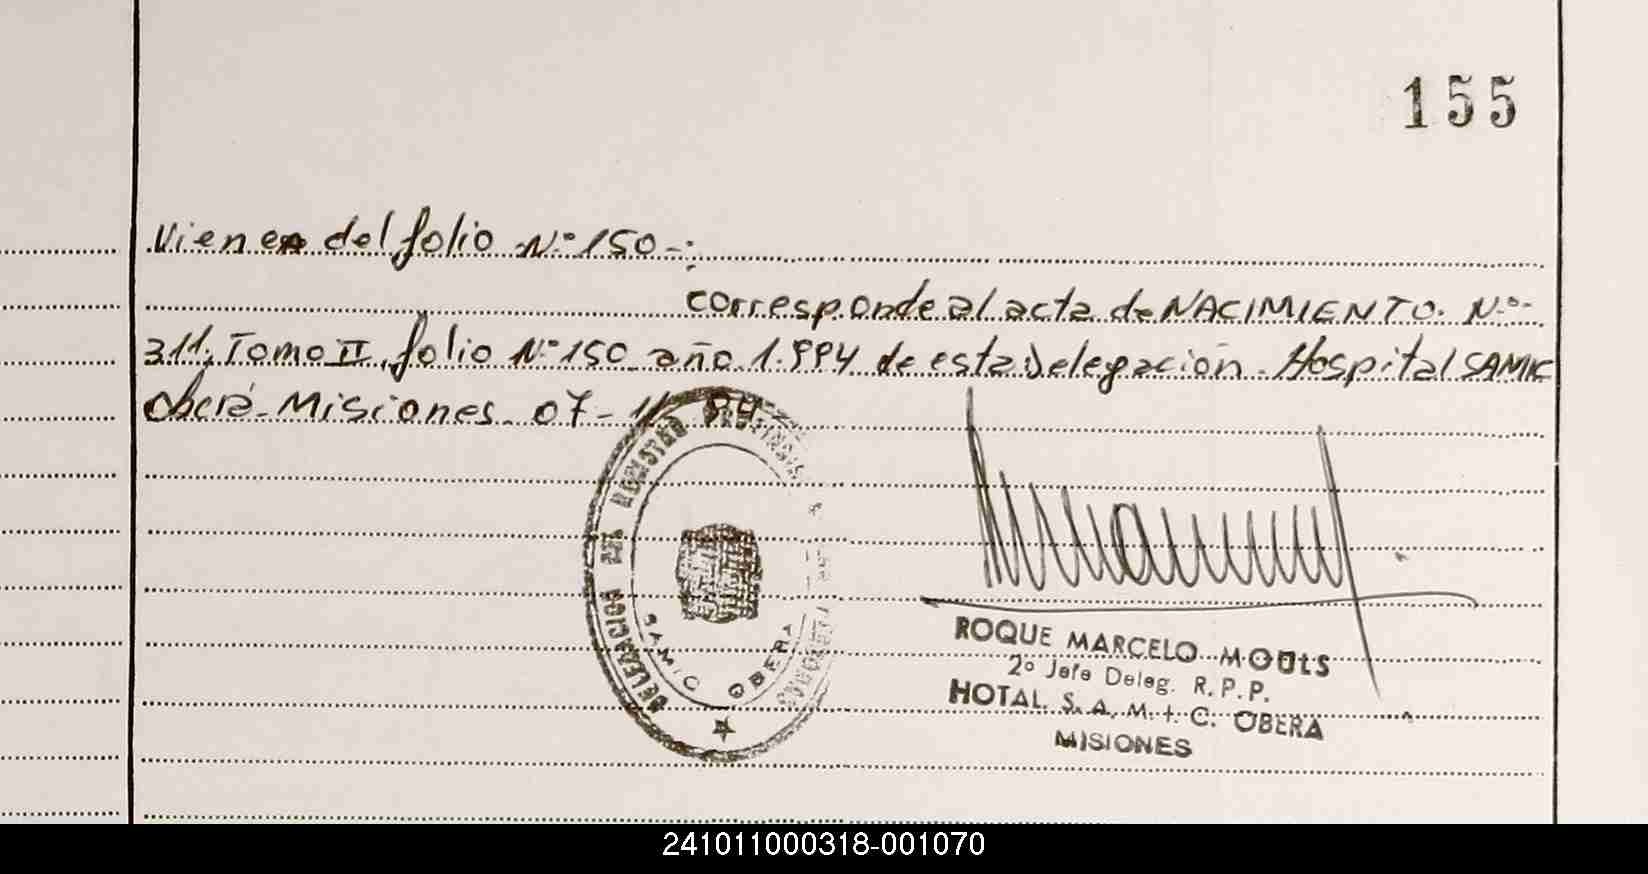 155
Viene del folio N° 150-:
corresponde al acta de NACIMIENTO. N°-
311, Tomo II, folio N° 150 año 1.994 de esta Delegación. Hospital SAMIC
Oberá-Misiones. 07-11-94
DELEGACION DEL REGISTRO PROVINCIAL
SAMIC OBERA
ROQUE MARCELO
2° Jefe Deleg. R.P.P.
HOTAL. S.A.M.I.C. OBERA
MISIONES
241011000318-001070